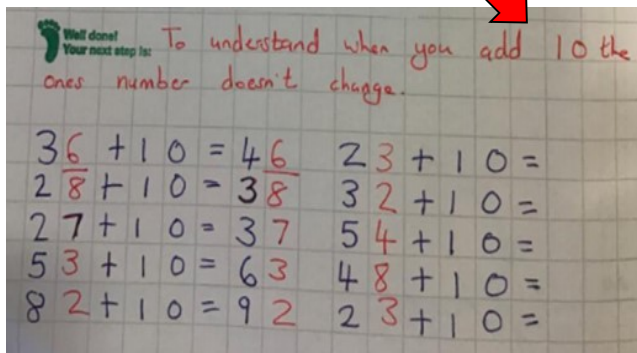 Well done!
Your next step is: To understand when you add 10 the
ones number doesn't change.
36 + 10 = 46
28 + 10 = 38
27 + 10 = 37
53 + 10 = 63
82 + 10 = 92
23 + 10 =
32 + 10 =
54 + 10 =
48 + 10 =
23 + 10 =